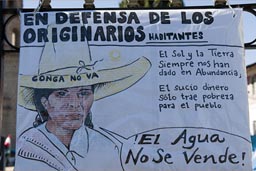 EN DEFENSA DE LOS
ORIGINARIOS HABITANTES
CONGA NO VA
El Sol y la Tierra
Siempre nos han
dado en Abundancia,
El sucio dinero
Sólo trae pobreza
para el pueblo
¡El Agua
No Se Vende!